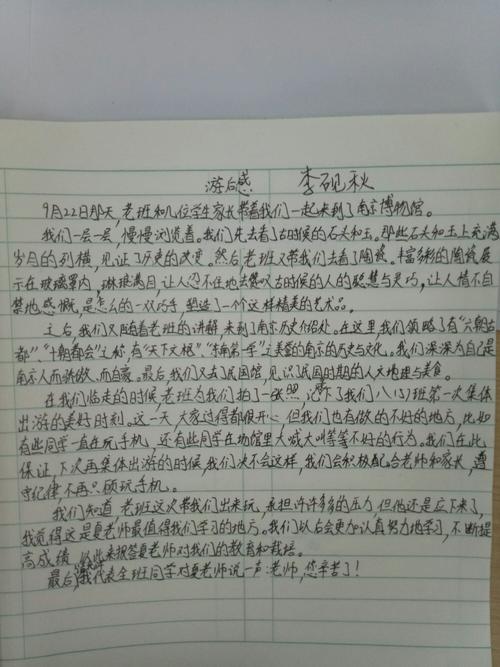 游后感 李砚秋
9月22日那天,老班和几位学生家长带着我们一起来到了南京博物馆。
我们一层一层,慢慢浏览着。我们先去看了古时候的石头和玉。那些石头和玉上充满
岁月的列横,见证了历史的改变。然后,老班又带我们去看了陶瓷。丰富多彩的陶瓷展
示在玻璃罩内,琳琅满目,让人忍不住地去赞叹古时候的人的聪慧与灵巧,让人情不自
禁地感慨,是怎么的一双巧手,塑造了一个这样精美的艺术品。
之后,我们又随着老班的讲解,来到了南京历史介绍处。在这里我们领略了有“六朝古
都”、“十朝都会”之称,有“天下文枢”、“东南第一学”之美誉的南京的历史与文化。我们深深为自己是
南京人而骄傲、而自豪。最后,我们又去了民国馆,见识了民国时期的人文地理与美食。
在我们临走的时候,老班为我们拍了一张照,记录下了我们八(5)班第一次集体
出游的美好时刻。这一天,大家过得都很开心,但我们也有做的不好的地方,比如
有些同学一直在玩手机,还有些同学在场馆里大喊大叫等等不好的行为。我们在此
保证,下次再集体出游的时候,我们决不会这样,我们会积极配合老师和家长,遵
守纪律不再只顾玩手机。
我们知道,老班这次带我们出来玩,承担许许多多的压力,但他还是立下来了,
我觉得这是夏老师最值得我们学习的地方。我们以后会更加认真努力地学习,不断提
高成绩,以此来报答夏老师对我们的教育和栽培。
最后,我代表全班同学对夏老师说一声:老师,您辛苦了!